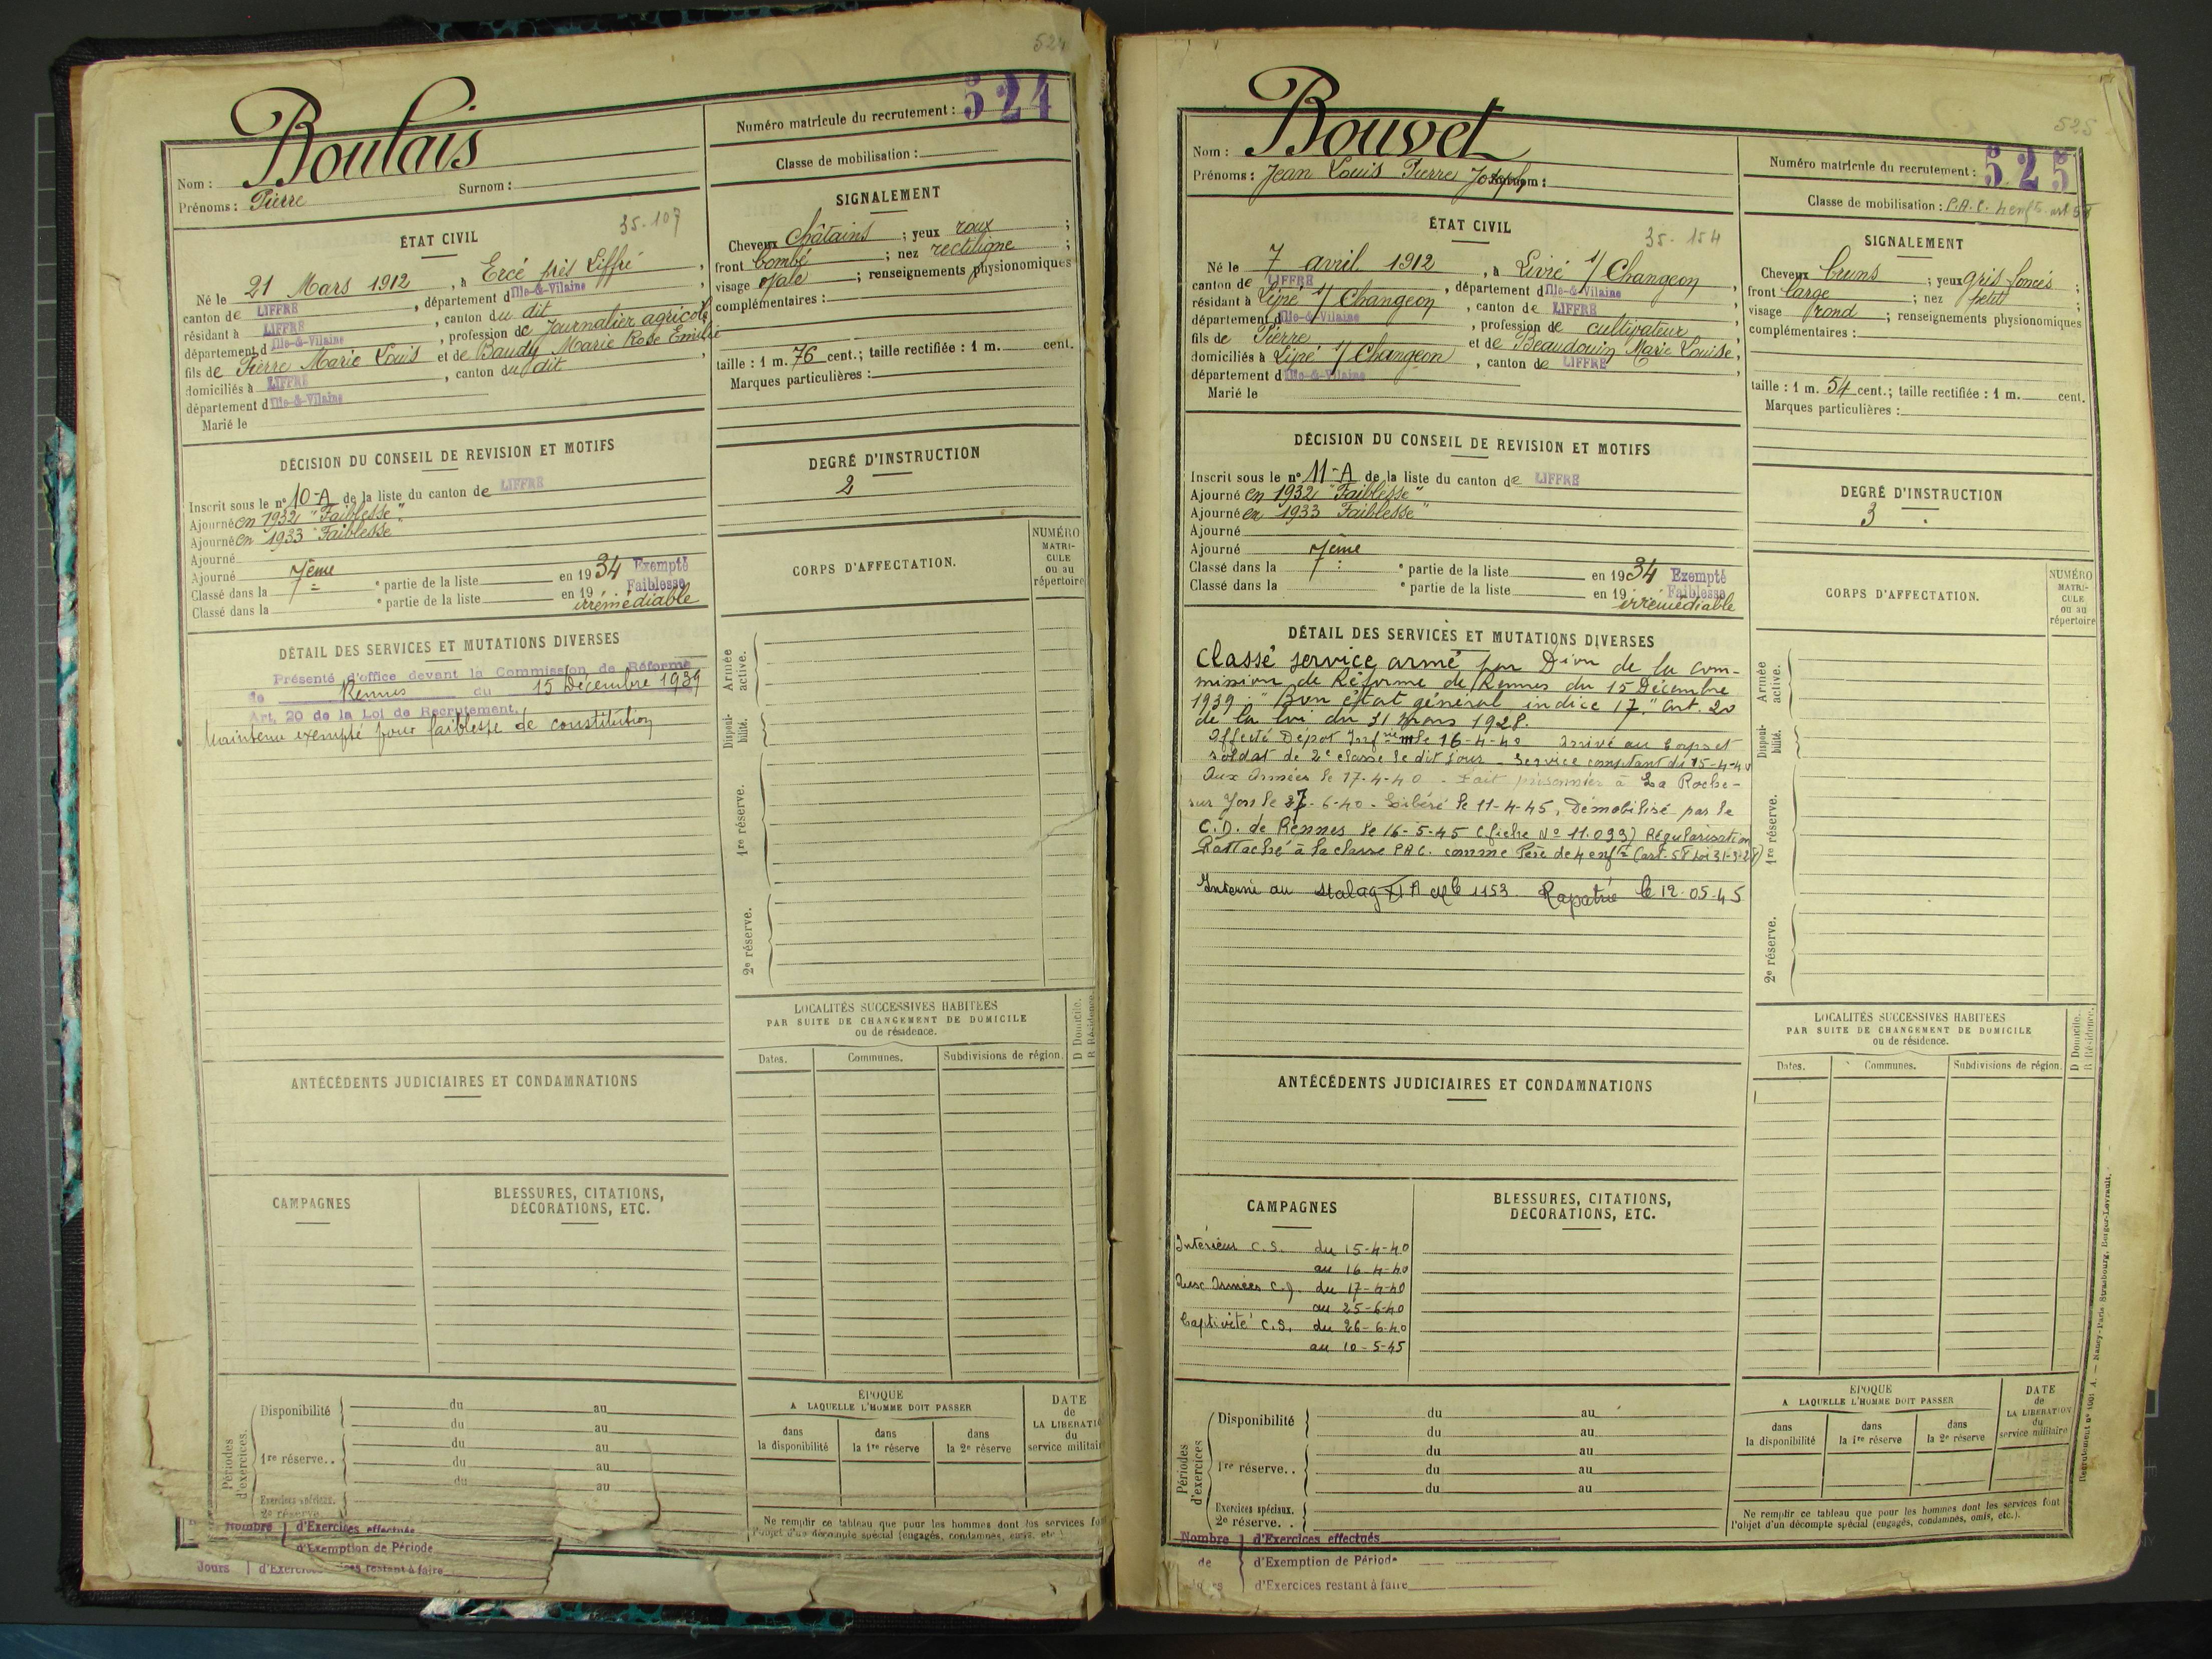 524
Boulais
Nom :
Surnom :
Prénoms : Pierre
Numéro matricule du recrutement : 524
Classe de mobilisation :
ÉTAT CIVIL
35.107
Né le 21 Mars 1912, à Ercé près Liffré,
canton de LIFFRÉ, département d Ille-&-Vilaine,
résidant à LIFFRÉ, canton du dit
département d Ille-&-Vilaine, profession de Journalier agricole
fils de Pierre Marie Louis et de Baudy Marie Rose Emilie
domiciliés à LIFFRÉ, canton du dit,
département d Ille-&-Vilaine
Marié le
SIGNALEMENT
Cheveux châtains ; yeux roux ;
front bombé ; nez rectiligne ;
visage ovale ; renseignements physionomiques
complémentaires :
taille : 1 m. 76 cent. ; taille rectifiée : 1 m. cent.
Marques particulières :
DÉCISION DU CONSEIL DE REVISION ET MOTIFS
Inscrit sous le n° 10-A de la liste du canton de LIFFRÉ
Ajourné en 1932 "Faiblesse"
Ajourné en 1933 "Faiblesse
Ajourné
Ajourné
Classé dans la 7ème partie de la liste en 1934 Exempté
Classé dans la partie de la liste en 19 Faiblesse
irrémédiable
DEGRÉ D'INSTRUCTION
2
CORPS D'AFFECTATION.
NUMÉRO
MATRI-
CULE
ou au
répertoire
DÉTAIL DES SERVICES ET MUTATIONS DIVERSES
Présenté d'office devant la Commission de Réforme
de Rennes du 15 Décembre 1939
Art. 20 de la Loi de Recrutement.
Maintenu exempté pour faiblesse de constitution
Armée
active.
Disponi-
bilité.
1re réserve.
2e réserve.
LOCALITÉS SUCCESSIVES HABITÉES
PAR SUITE DE CHANGEMENT DE DOMICILE
ou de résidence.
D Domicile.
R Résidence.
Dates.
Communes.
Subdivisions de région.
ANTÉCÉDENTS JUDICIAIRES ET CONDAMNATIONS
CAMPAGNES
BLESSURES, CITATIONS,
DÉCORATIONS, ETC.
Périodes
d'exercices.
Disponibilité du au
du au
1re réserve.. du au
du au
du au
Exercices spéciaux.
2e réserve
Nombre d'Exercices effectués
d'Exemption de Période
Jours d'Exercices restant à faire
ÉPOQUE
A LAQUELLE L'HOMME DOIT PASSER
dans
la disponibilité
dans
la 1re réserve
dans
la 2e réserve
DATE
de
LA LIBÉRATIO
du
service militair
Ne remplir ce tableau que pour les hommes dont les services fo
l'objet d'un décompte spécial (engagés, condamnés, omis, etc.)
525
Nom : Bouvet
Prénoms : Jean Louis Pierre Joseph Surnom :
Numéro matricule du recrutement : 525
Classe de mobilisation : P.A.C. 4 enfts art 58
ÉTAT CIVIL
35-154
Né le 7 avril 1912, à Livré s/ Changeon
canton de LIFFRÉ, département d Ille-&-Vilaine
résidant à Livré s/ Changeon, canton de LIFFRÉ
département d Ille-&-Vilaine, profession de cultivateur,
fils de Pierre et de Beaudouin Marie Louise,
domiciliés à Livré s/ Changeon, canton de LIFFRÉ,
département d Ille-&-Vilaine
Marié le
SIGNALEMENT
Cheveux bruns ; yeux gris foncés ;
front large ; nez petit ;
visage rond ; renseignements physionomiques
complémentaires :
taille : 1 m. 54 cent. ; taille rectifiée : 1 m. cent.
Marques particulières :
DÉCISION DU CONSEIL DE REVISION ET MOTIFS
Inscrit sous le n° 11-A de la liste du canton de LIFFRÉ
Ajourné en 1932 "Faiblesse"
Ajourné en 1933 Faiblesse"
Ajourné
Ajourné
Classé dans la 7ème partie de la liste en 1934 Exempté
Classé dans la partie de la liste en 19 Faiblesse
irrémédiable
DEGRÉ D'INSTRUCTION
3
CORPS D'AFFECTATION.
NUMÉRO
MATRI-
CULE
ou au
répertoire
DÉTAIL DES SERVICES ET MUTATIONS DIVERSES
Classé service armé par Dion de la com-
mission de Réforme de Rennes du 15 Décembre
1939 : "Bon état général indice 17." art. 20
de la loi du 31 mars 1928.
Affecté Dépot Infrie le 16-4-40 Arrivé au corps et
soldat de 2e classe le dit jour - Service comptant du 15-4-40
Aux Armées le 17-4-40 - Fait prisonnier à La Roche-
sur Yon le 27-6-40 - Libéré le 11-4-45, Démobilisé par le
C.D. de Rennes le 16-5-45 (fiche N° 11.093) Régularisation
Rattaché à la classe P.A.C. comme Père de 4 enfts (art. 58 Loi 31-3-28)
Interné au stalag XI A Mle 1153. Rapatrié le 12-05-45
Armée
active.
Disponi-
bilité.
1re réserve.
2e réserve.
LOCALITÉS SUCCESSIVES HABITÉES
PAR SUITE DE CHANGEMENT DE DOMICILE
ou de résidence.
D Domicile.
R Résidence.
Dates.
Communes.
Subdivisions de région.
ANTÉCÉDENTS JUDICIAIRES ET CONDAMNATIONS
CAMPAGNES
BLESSURES, CITATIONS,
DÉCORATIONS, ETC.
Intérieur C.S. du 15-4-40
au 16-4-40
Aux Armées C.D. du 17-4-40
au 25-6-40
Captivité C.S. du 26-6-40
au 10-5-45
Périodes
d'exercices
Disponibilité du au
du au
du au
1re réserve.. du au
du au
Exercices spéciaux.
2e réserve..
Nombre d'Exercices effectués
de d'Exemption de Période
d'Exercices restant à faire
ÉPOQUE
A LAQUELLE L'HOMME DOIT PASSER
dans
la disponibilité
dans
la 1re réserve
dans
la 2e réserve
DATE
de
LA LIBÉRATION
du
service militaire
Ne remplir ce tableau que pour les hommes dont les services font
l'objet d'un décompte spécial (engagés, condamnés, omis, etc.).
Recrutement N° 1001 A. — Nancy-Paris-Strasbourg, Berger-Levrault.